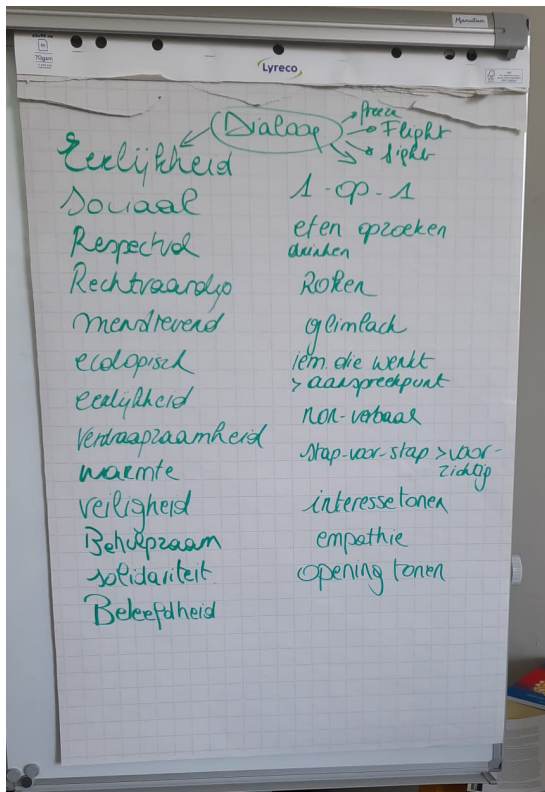 Manutan
70gsm
Lyreco
Dialoog
freeze
Flight
fight
Eerlijkheid
Sociaal
Respectvol
Rechtvaardig
menslievend
ecologisch
eerlijkheid
Verdraagzaamheid
warmte
veiligheid
Behulpzaam
solidariteit
Beleefdheid
1-op-1
eten opzoeken
drinken
Roken
glimlach
iem. die werkt
> aanspreekpunt
non-verbaal
stap-voor-stap > voor-
zichtig
interesse tonen
empathie
opening tonen